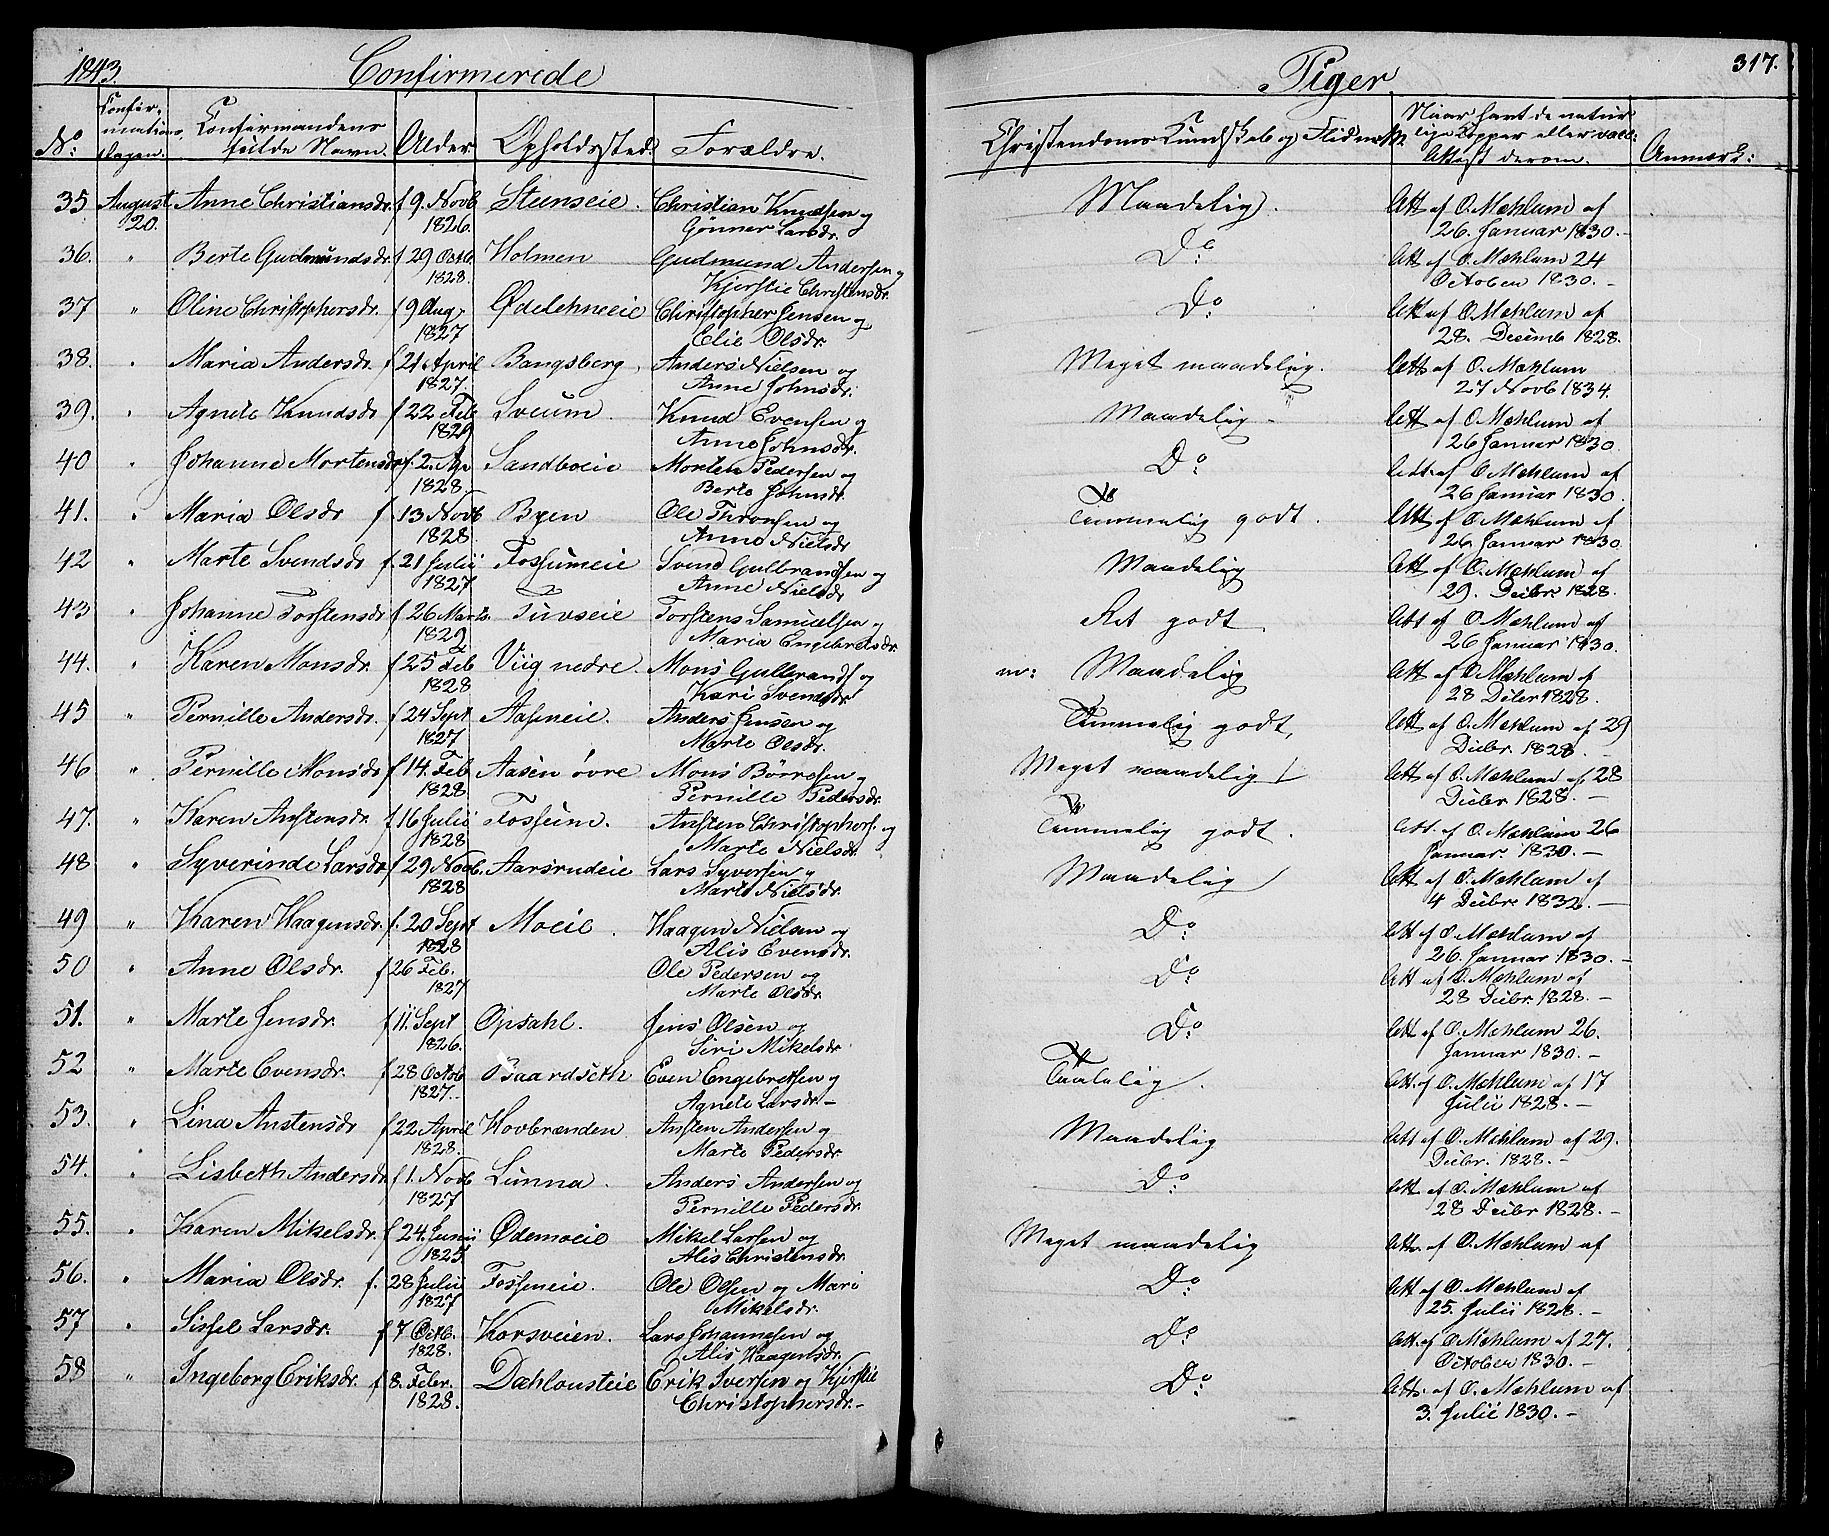 1843. Confirmerede Piger 317.
No. Confirmations dagen. Confirmandens fulde Navn. Alder Opholdssted. Forældre. Christendoms Kundskab og Naar havt de naturlige Kopper eller Attest derom. Anmærk:
35 August 20. Anne Christiansdr. f 9. Novb 1826. Steenseie. Christian Knudsen og Gønner Larsdr. Maadelig. Att af O. Mæhlum af 26. Januar 1830.-
36. " Berte Gudmundsdr. f 29 Octb. 1828. Holmen Gudmund Andersen og Kjerstie Christensdr. Do. Att af O. Mæhlum 24 October 1830.-
37 " Oline Christophersdr. f 9 Aug. 1827 Ødelehneeie Christopher Jensen og Elie Olsdr. Do. Att af O. Mæhlum af 28. Decemb 1828.
38. " Maria Andersdr f 21 April 1827. Bangsberg. Anders Nielsen og Anne Johnsdr. Meget maadelig. Att af O. Mæhlum 27 Novb 1834.
39. " Agnete Knudsdr f 22 Feb 1829 Sveum. Knud Evensen og Anne Johnsdr. Maadelig - Att af O. Mæhlum af 26 Januar 1830
40 " Johanne Mortensdr f. 2. Ap 1828. Sandboeie Morten Pedersen og Berte Johnsdr. Do. Att. af O. Mæhlum af 26 Januar 1830.
41. " Maria Olsdr f 13 Novb 1828. Byen Ole Thronsen og Anne Nielsdr Temmelig godt. Att af O. Mæhlum af 26 Januar 1830
42 " Marte Svendsdr f. 21 Julii 1827 Fossumeie Svend Gulbrandsen og Anne Nielsdr Maadelig Att af O. Mæhlum af 29. Decbr. 1828.
43 " Johanne Torstensdr f 26 Marts. 1829 Tuvseie Torstens Samuelsen og Maria Engebretsdr. Ret godt Att af O Mæhlum af 26 Januar 1830.
44. " Karen Monsdr. f 25 Feb 1828 Viig nedre. Mons Gulbrands. og Kari Svendsdr. m: Maadelig Att af O. Mæhlum af 28 Decbr 1828.
45 " Pernille Andersdr. f 24 Sept 1827 Aaseneie. Anders Jensen og Marte Olsdr. Temmelig godt, Att af O. Mæhlum af 29 Decbr. 1828.
46 " Pernille Monsdr f 14. Feb 1828 Aasen øvre Mons Børresen og Pernille Pedersdr. Meget maadelig Att af O. Mæhlum af 28 Decbr 1828.-
47. " Karen Anstensdr. f 16 Julii 1828 Fossum. Ansten Christophers. og Marte Nielsdr. Temmelig godt. Att. af O. Mæhlum 26 Januar. 1830.-
48 " Syverinde Larsdr f 29 Novb. 1828 Aarsrudeie Lars Syversen og Marte Nielsdr. Maadelig Att af O. Mæhlum af 4 Decbr. 1832.-
49 " Karen Haagensdr. f. 20 Sept 1828 Moeie. Haagen Nielsen og Alis Evensdr. Do. Att af O. Mæhlum af 26. Januar 1830.-
50 " Anne Olsdr. f 26 Feb. 1827 Ole Pedersen og Marte Olsdr. Do Att af O. Mæhlum af 28 Decbr. 1828.-
51. " Marte Jensdr. f 11. Sept 1826. Opsahl. Jens Olsen og Siri Mikelsdr Do. Att af O. Mæhlum 26. Januar 1830.-
52 " Marte Evensdr. f 28 Octob 1827.- Baardseth Even Engebretsen og Agnete Larsdr - Taalelig. Att. af O. Mæhlum af 17 Julii 1828.-
53. " Lina Anstensdr f 22 April 1828. Hovbrænden Ansten Andersen og Marte Pedersdr. Maadelig Att af O. Mæhlum af 29. Decbr. 1828.-
54. " Lisbeth Andersdr f 1. Novb 1827 Linna. Anders Andersen og Pernille Pedersdr. Do. Att af O. Mæhlum af 28 Decbr 1828.-
55. " Karen Mikelsdr. f 24. Junii 1825 Ødemoeie Mikel Larsen og Alis Christensdr. Meget maadelig Att. af O. Mæhlum af
56. " Maria Olsdr. f. 28 Julii 1827 Fosseneie. Ole Olsen og Mari Mikelsdr. Do. Att af O. Mæhlum af 25. Julii 1828.-
57 " Sissel Larsdr. f 7 Octb. 1828. Korsveien. Lars Johannesen og Alis Haagensdr. Do. Att. af O. Mæhlum af 27. October 1830.-
58 " Ingeborg Eriksdr. f 8. Febr. 1828. Dæhlousteie Erik Iversen og Kjerstie Christophersdr.- Do. Att. af O. Mæhlum af 3. Julii 1830.-